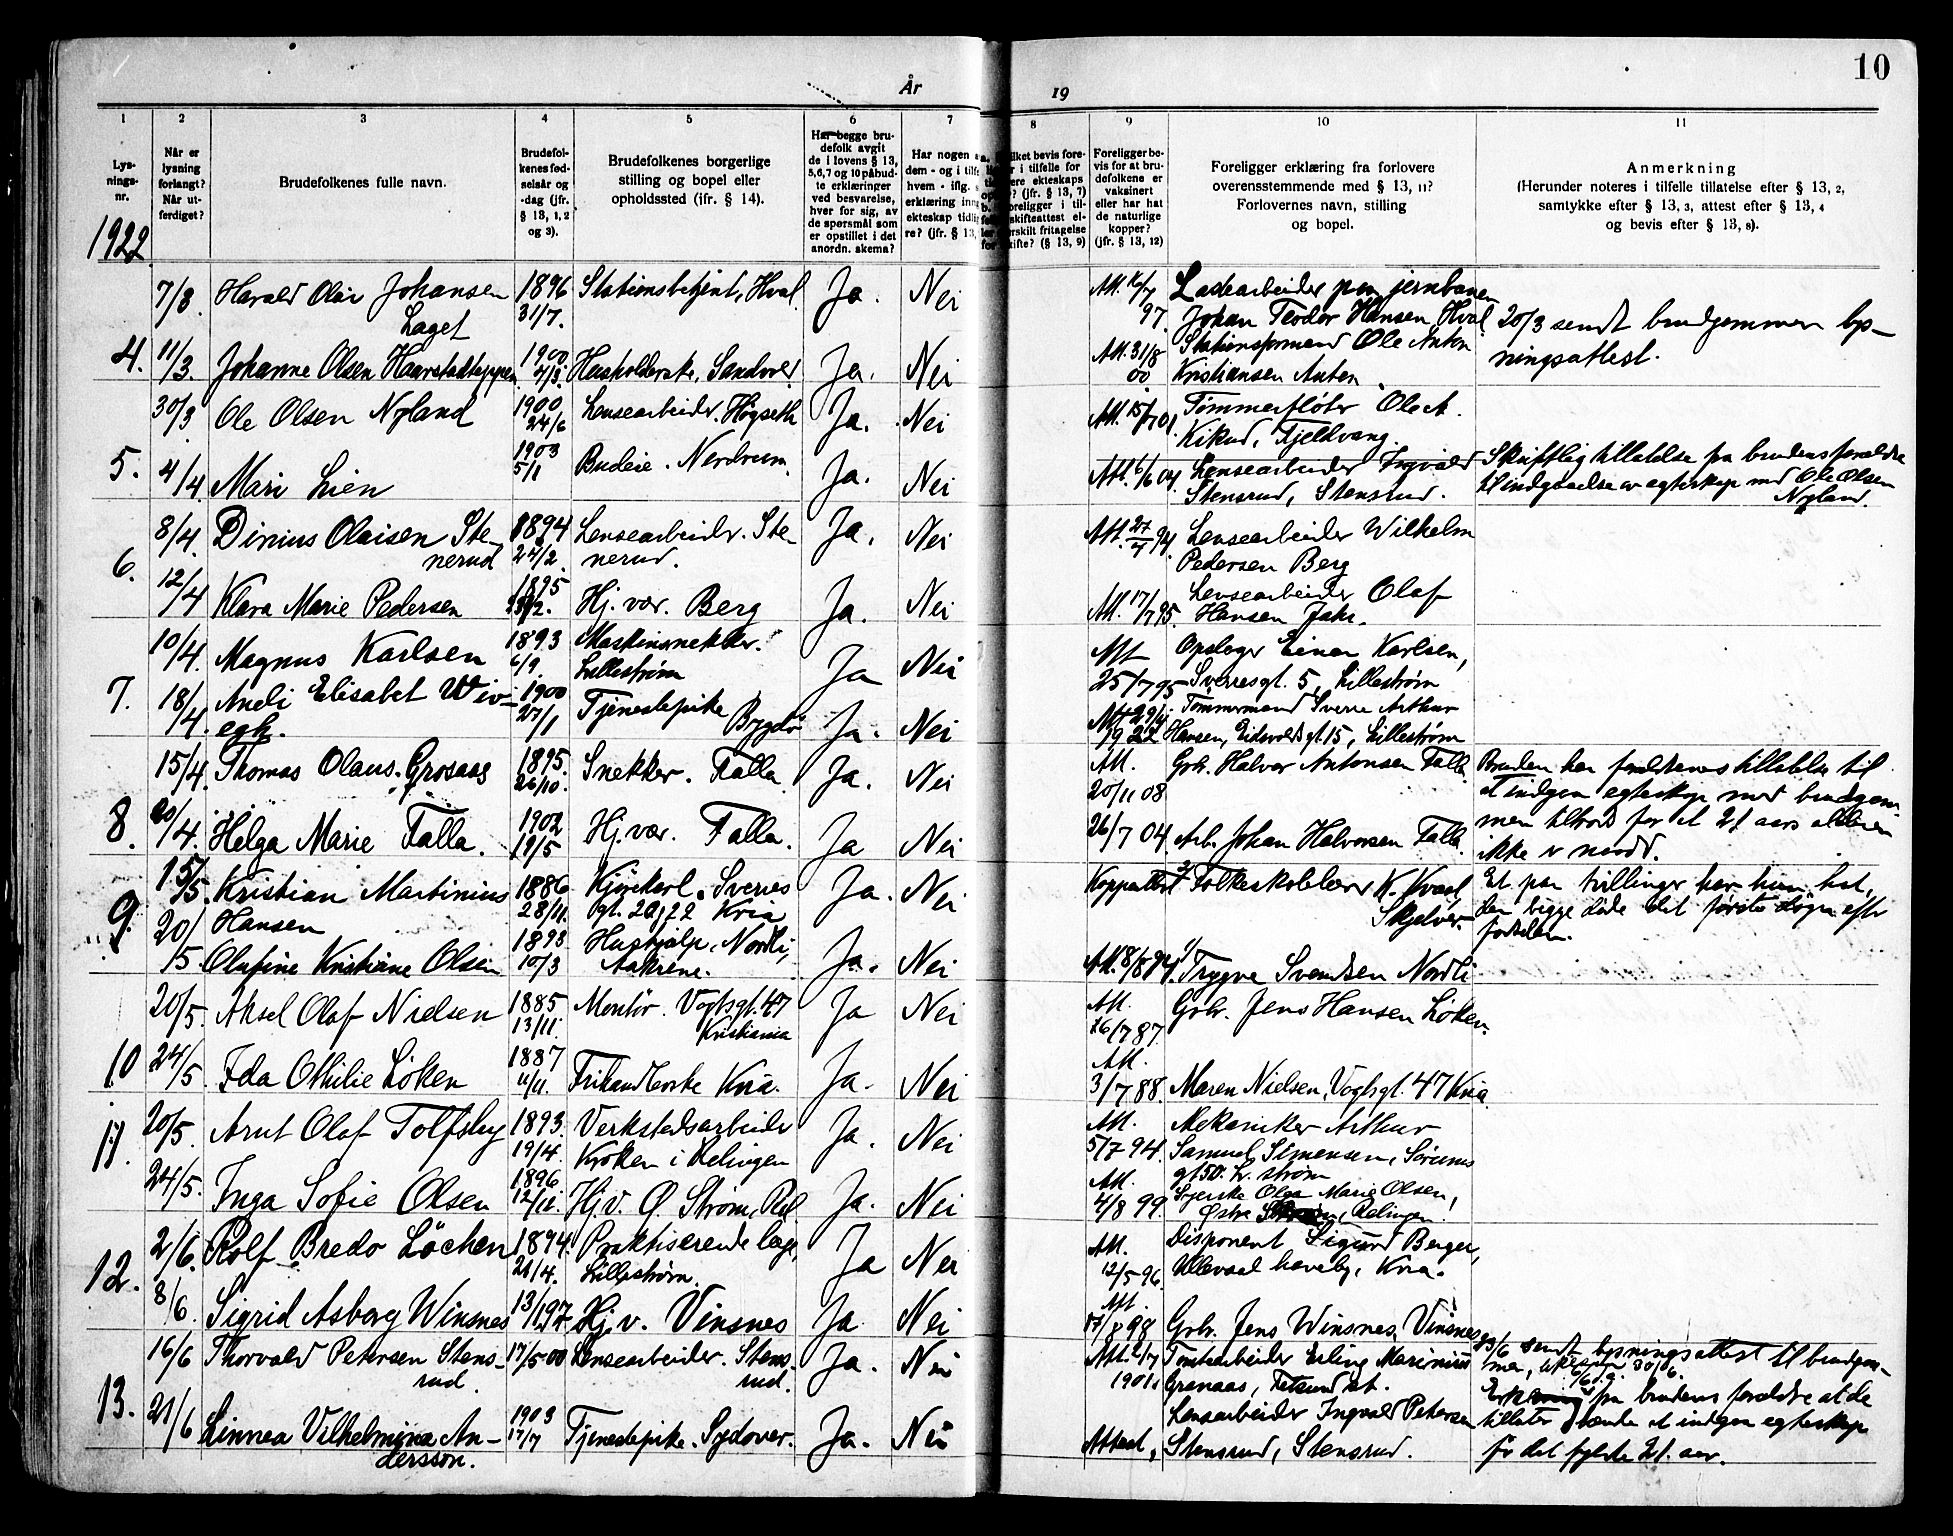 10
År
19
1
2
3
4
5
6
7
8
9
10
11
Lys-
nings-
nr.
Når er
lysning
forlangt?
Når ut-
ferdiget?
Brudefolkenes fulle navn.
Brudefol-
kenes fød-
selsår og
-dag (jfr.
§ 13, 1, 2
og 3).
Brudefolkenes borgerlige
stilling og bopel eller
opholdssted (jfr. § 14).
Har begge bru-
defolk avgit
de i lovens § 13,
5,6,7 og 10 påbud-
te erklæringer
ved besvarelse,
hver for sig, av
de spørsmål som
er opstillet i det
anordn. skema?
Har nogen a
dem - og i tilf
hvem - iflg.
erklæring inn
ekteskap tidlig
re? (jfr. § 13,
lket bevis fore-
r i tilfelle for
ere ekteskaps
? (jfr. § 13, 7)
oreligger i til-
skifteattest el-
ærskilt fritagelse
kifte? (§ 13, 9)
Foreligger be-
vis for at bru-
defolkene er
vaksinert
eller har hat
de naturlige
kopper?
(jfr. § 13, 12)
Foreligger erklæring fra forlovere
overensstemmende med § 13, 11?
Forlovernes navn, stilling
og bopel.
Anmerkning
(Herunder noteres i tilfelle tillatelse efter § 13, 2,
samtykke efter § 13, 3, attest efter § 13, 4
og bevis efter § 13, 8).
1922
7/3 Harald Olai Johansen 1896 Stationsbetjent, Hval Ja. Nei
Laget 31/7.
Ladearbeider paa jernbanen
97. Johan Teodor Hansen Hval 20/3 sendt brudgommen lys-
4. 11/3. Johanne Olsen 1900 Husholderske, Sandvold Ja. Nei
Att. 31/8 Stationsformand Ole Anton ningsattest.
00 Kristiansen Anten
30/3 Ole Olsen Nyland 1900 Lensearbeider. Høgseth Ja. Nei
24/6
Tømmerfløter Ole A.
Kikud, Fjeldvang.
5. 4/4 Mari Lien 1903 5/1 Budeie. Nerdrum. Ja. Nei
Att. 6/6 04. Lensearbeider Ingvald Skriftlig tillatelse fra brudens forældre
Stensrud, Stensrud. til indgaaelse av egteskap med Ole Olsen
Nyland.
8/4. Dinius Olaisen Ste- 1894 Lensearbeider. Ste- Ja. Nei
nerud 24/2. nerud.
Att. 27/4 94. Lensearbeider Wilhelm
Pedersen Berg
6. 12/4 Klara Marie Pedersen 1895 Hj. vær. Berg Ja. Nei
Att. 17/7 95. Lensearbeider Olaf
Hansen Jahr.
10/4. Magnus Karlsen 1893 Maskinsnekker. Ja Nei
6/9. Lillestrøm
Att Opslager Einar Karlsen,
25/7 95 Sverresgt. 5, Lillestrøm
7. 18/4. Andi Elisabet Wiv- 1900 Tjenestepike Ja. Nei
egh. 27/1 Bygdø
Att 29/4 Tømmermand Sverre Arthur
1922 Hansen, Eidsvoldsgt. 15, Lillestrøm
15/4. Thomas Olaus. Grosaas 1895. Snekker. Falla Ja. Nei
26/10.
Att. Grb. Halvor Antonsen Falla Bruden har forældrenes tillatelse til
20/11 08 at indgaa egteskap med brudgom-
men tiltrods for at 21 aars alderen
ikke er naadd.
8. 20/4. Helga Marie Falla. 1902 19/5 Hj. vær. Falla. Ja Nei
26/7 04. Arb. Johan Halvorsen Falla.
15/5. Kristian Martinius 1886 Kjørekarl. Sverres Ja. Nei
Hansen 28/11. gt. 20, 22 Kria
Koppattest Folkeskolelærer K. Kvaal, Et par tvillinger har hun hat,
Skjelver. den begge døde det første døgn efter
fødselen.
9. 20/5. Olufine Kristiane Olsen 1893 10/3 Hushjælp. Nordli, Aakrene. Ja. Nei
Att. 8/8 94. Trygve Svendsen Nordli
20/5. Aksel Olaf Nielsen 1885 Montør. Vogtsgt. 47 Ja Nei
13/11. Kristiania
Att. Grbr. Jens Hansen Løken.
26/7 87.
10 24/5. Ida Othilie Løken 1887 11/11. Frihandlerske Kria. Ja. Nei
Att.
3/7 88. Maren Nielsen, Vogtsgt. 47 Kria.
11. 20/5. Arnt Olaf Tolfsby 1893. Verkstedsarbeider Ja. Nei
19/4. Kroken i Relingen
Att. Mekaniker Arthur
5/7 94. Samuel Simensen, Sørums
gt 50. L. strøm
24/5. Inga Sofie Olsen 1896 12/11. Hj. v. Ø. Strøm, Rel. Ja. Nei
Att. Syerske Olga Marie Olsen,
4/8 99 Østre Strøm, Relingen.
12. 2/6. Rolf Bredo Løchen 1894. Praktiserende læge, Ja Nei
21/4. Lillestrøm.
Att. Disponent Sigurd Berger,
12/5 96. Ullevaal haveby, Kria.
8/6 Sigrid Asborg Winsnes 13/1 97 Hj. v. Vinsnes Ja Nei
Att.
17/8 98 Grbr. Jens Winsnes, Vinsnes
16/6 Thorvald Petersen Stens- 17/5 00 Lensearbeider. Stens- Ja. Nei
rud. rud.
Att. Tomtearbeider Erling Marinius 23/6 sendt lysningsattest til brudgom-
1901. Granaas, Fetsund st. men,
13. 21/6 Linnea Vilhelmina An- 1903 Tjenestepike. Sydover. Ja. Nei
dersson. 17/7
Lensearbeider Ingvald Petersen fra brudens forældre at de
Attest, Stensrud, Stensrud. tillater at indgaa egteskap
før det fyldte 21. aar.